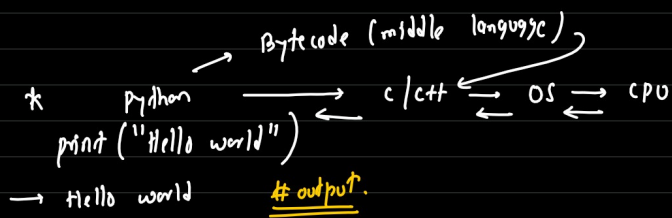 Bytecode (middle language)
* python → c/c++ → OS → CPU
print ("Hello world")
→ Hello world # output.